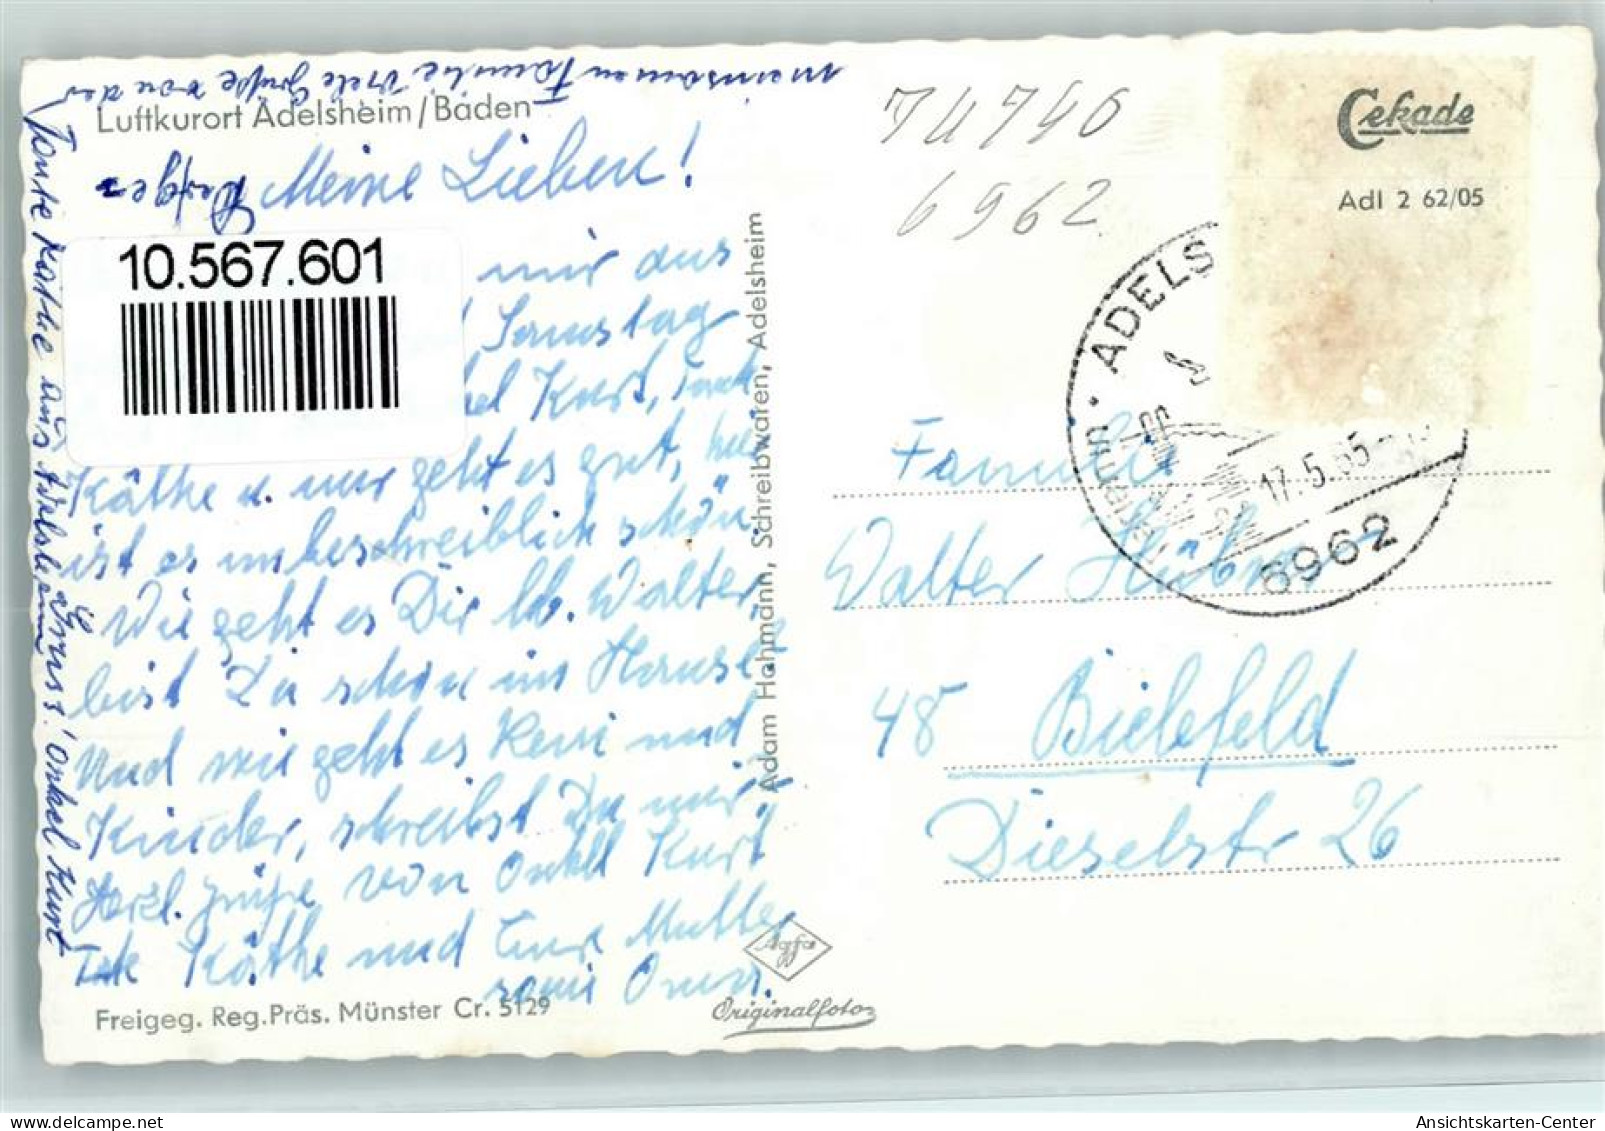 Luftkurort Adelsheim/Baden
Meine Lieben!
10.567.601
mir aus
Samstag
Kurt,
Käthe u. mir geht es gut, hier
ist es unbeschreiblich schön.
Wie geht es Dir lb. Walter,
bist Du schon im Hause?
Und wie geht es Reni und
Kinder, schreibst Du mir
Herzl. Grüße von Onkel Kurt
Käthe und Eure Mutter
Oma.
Freigeg. Reg.Präs. Münster Cr. 5129
Tante Käthe aus Adelsheim
Gruss! Onkel Kurt
Familie viele Grüße von der
Adam Hahmann, Schreibwaren, Adelsheim
Agfa
Originalfoto
6962
Cekade
Adl 2 62/05
ADELS
17.5.65
6962
Familie
Walter Hübner
48 Bielefeld
Dieselstr 26
Ansichtskarten-Center